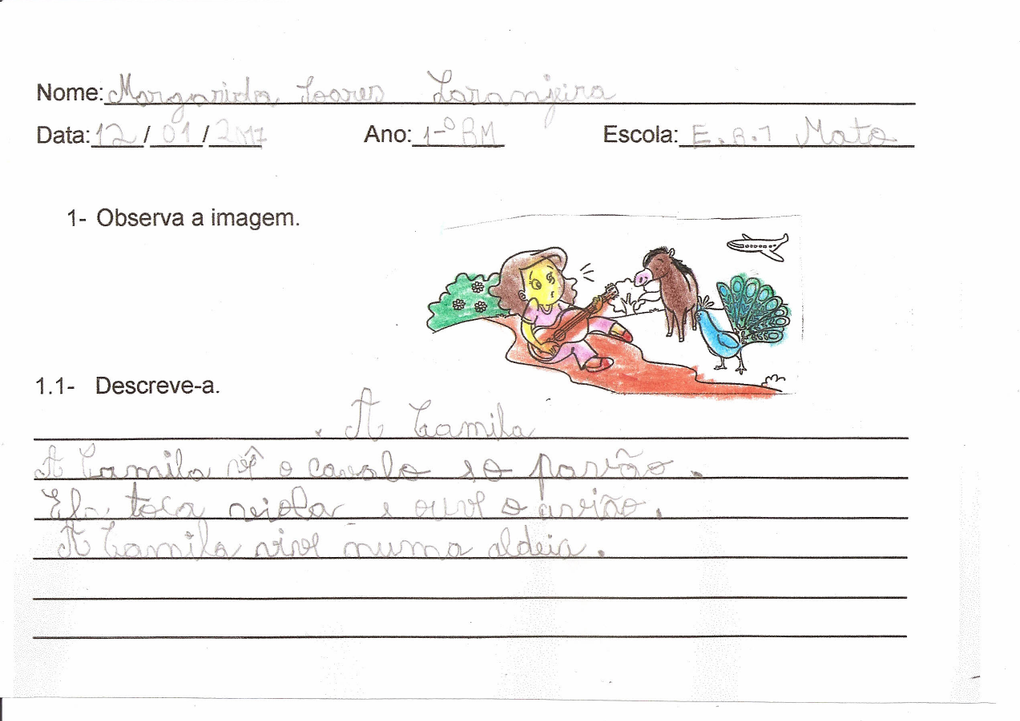 Nome: Margarida Soares Laranjeira
Data: 12 / 01 / 2017 Ano: 1-º BM Escola: E.B.1 Mato
1- Observa a imagem.
1.1- Descreve-a.
. A Camila
A Camila vê o cavalo e o pavão.
Ela toca viola e ouve o avião.
A Camila vive numa aldeia.